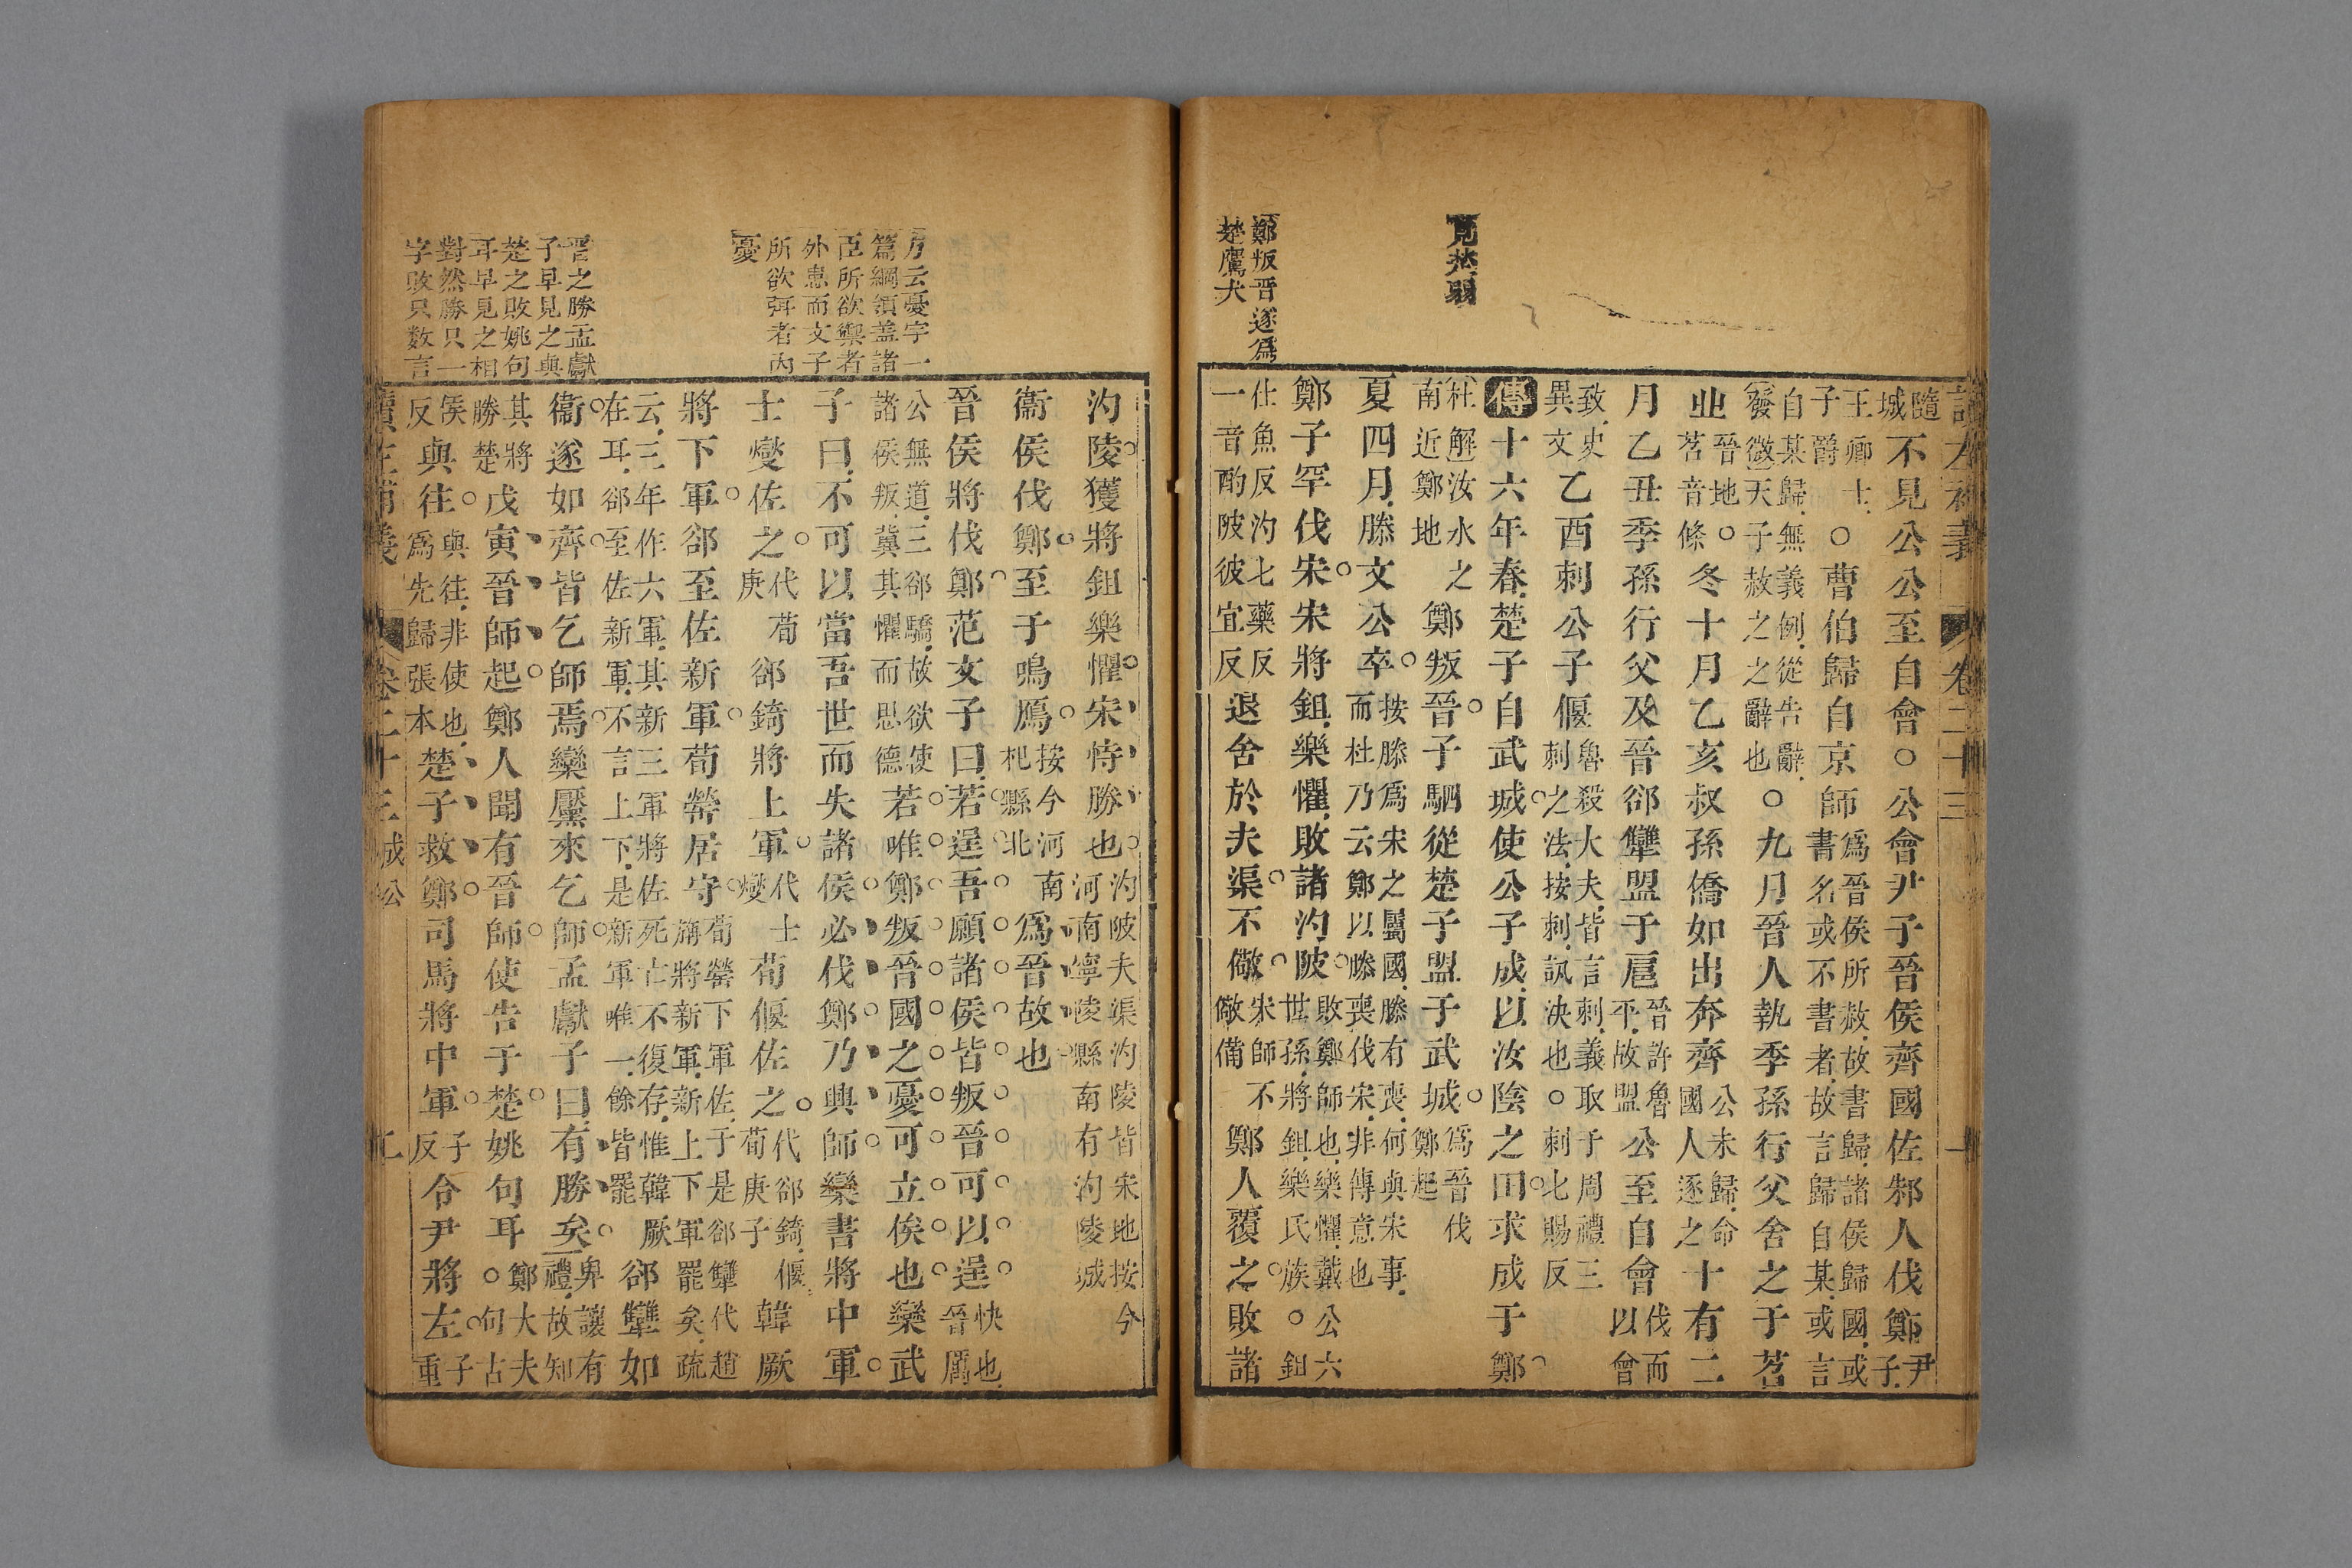 讀左補義 卷二十三 十
隨城不見公公至自會○公會尹子晉侯齊國佐邾人伐鄭尹子
王卿士子爵○曹伯歸自京師爲晉侯所赦故書歸諸侯歸國或書名或不書者故言歸自某或言
自某歸無義例從告辭發微天子赦之之辭也○九月晉人執季孫行父舍之于苕
丘晉地苕音條○冬十月乙亥叔孫僑如出奔齊公未歸命國人逐之十有二
月乙丑季孫行父及晉郤犨盟于扈晉許魯平故盟公至自會伐而以會
致史異文乙酉刺公子偃魯殺大夫皆言刺義取于周禮三刺之法按刺訊決也○刺七賜反
傳十六年春楚子自武城使公子成以汝陰之田求成于鄭
見楚弱
杜解汝水之南近鄭地鄭叛晉子駟從楚子盟于武城爲晉伐鄭起
夏四月滕文公卒按滕爲宋之屬國滕有喪何與宋事而杜乃云鄭以滕喪伐宋非傳意也
鄭子罕伐宋宋將鉏樂懼敗諸汋陂敗鄭師也樂懼戴公六世孫將鉏樂氏族○鉏
鄭叛晉遂爲
楚鷹犬
仕魚反汋七藥反一音酌陂彼宜反退舍於夫渠不儆宋師不儆備鄭人覆之敗諸
汋陵獲將鉏樂懼宋恃勝也汋陂夫渠汋陵皆宋地按今河南寧陵縣南有汋陵城
衞侯伐鄭至于鳴鴈按今河南杞縣北爲晉故也
晉侯將伐鄭范文子曰若逞吾願諸侯皆叛晉可以逞快也晉厲
方云憂字一
篇綱領蓋諸
臣所欲禦者
外患而文子
所欲弭者內
憂
公無道三郤驕故欲使諸侯叛冀其懼而思德若唯鄭叛晉國之憂可立俟也欒武
子曰不可以當吾世而失諸侯必伐鄭乃興師欒書將中軍
士燮佐之代荀庚郤錡將上軍代士燮荀偃佐之代郤錡偃荀庚子韓厥
將下軍郤至佐新軍荀罃居守荀罃下軍佐于是郤犨代趙旃將新軍新上下軍罷矣疏
云三年作六軍其新三軍將佐死亡不復存惟韓厥在耳郤至佐新軍不言上下是新軍唯一餘皆罷郤犨如
晉之勝孟獻
子早見之與
楚之敗姚句
耳早見之相
對然勝只一
字敗只数言
衞遂如齊皆乞師焉欒黶來乞師孟獻子曰有勝矣卑讓有禮故知
其將勝楚戊寅晉師起鄭人聞有晉師使告于楚姚句耳○鄭大夫句古
侯反與往與往非使也爲先歸張本楚子救鄭司馬將中軍子反令尹將左子重
讀左補義 卷二十三 成公